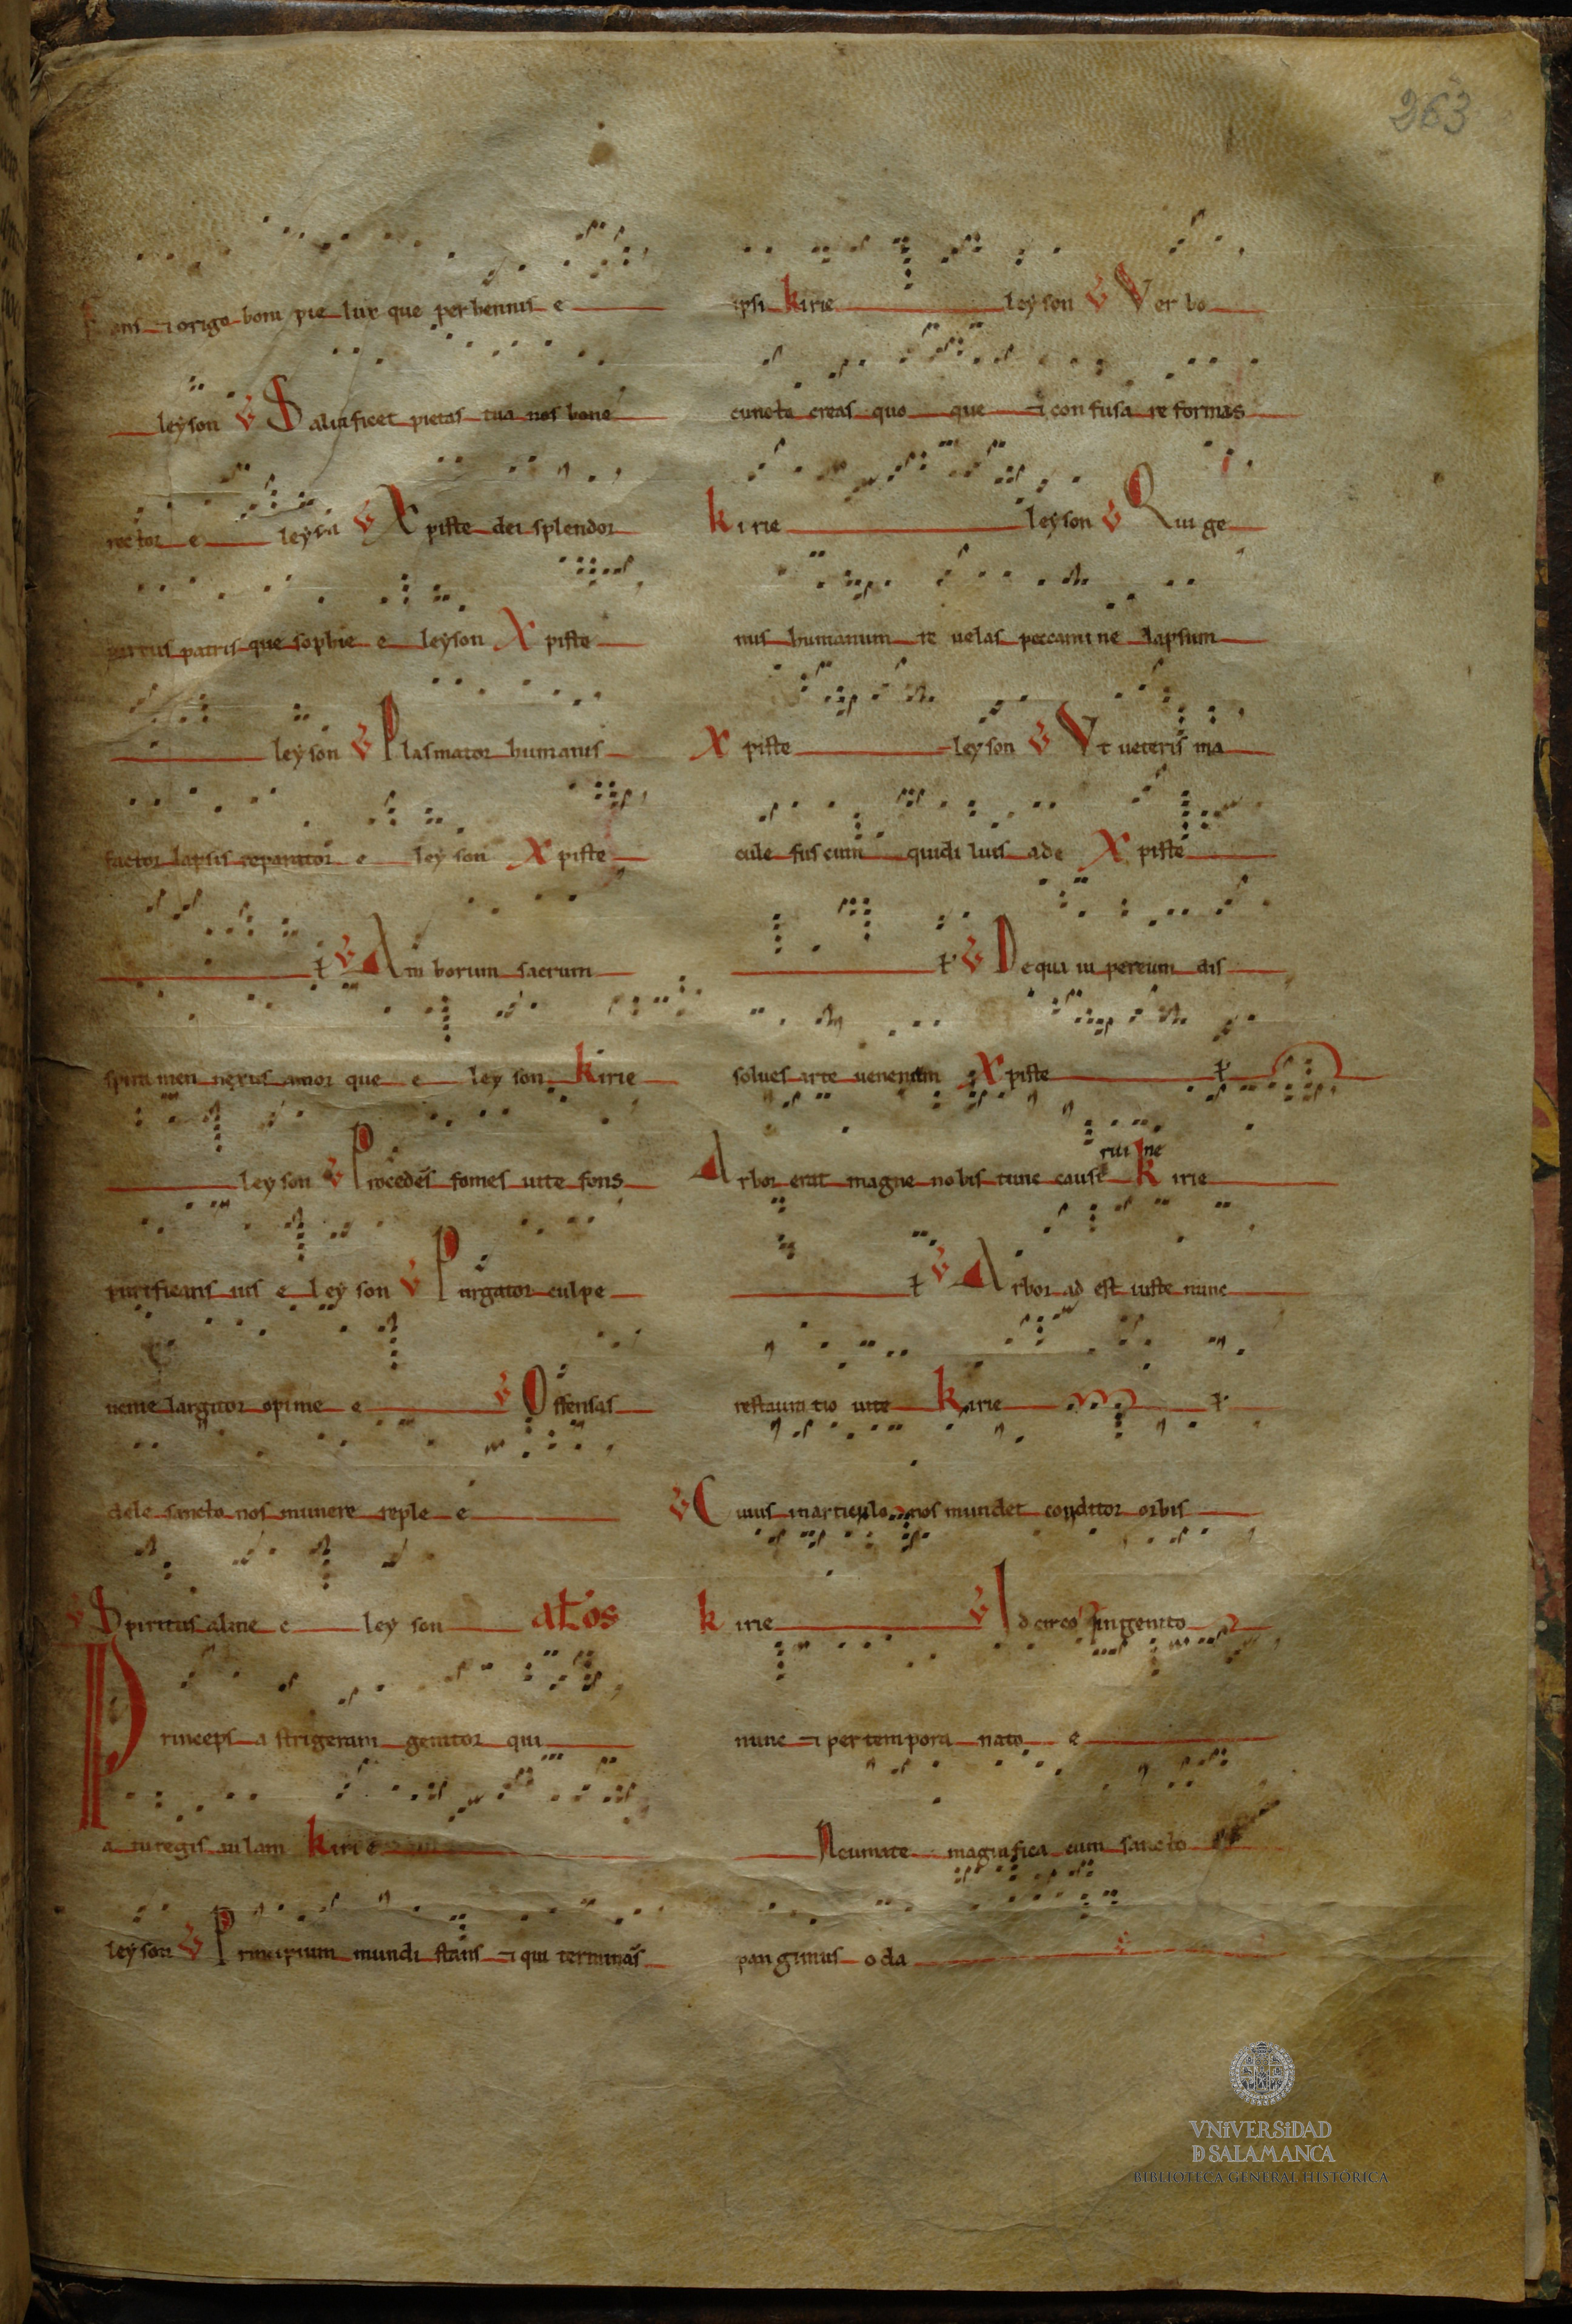 263
Fons ⁊ origo boni pie lux que perhennis e
leyson ℣ Saluificet pietas tua nos bone
rector e leyson ℣ Xpiste dei splendor
uirtus patris que sophie e leyson Xpiste
leyson ℣ Plasmator humanus
factor lapsis reparator e leyson Xpiste
℣ Amborum sacrum
spiramen nexus amor que e leyson kirie
leyson ℣ Procedes fomes uite fons
purificans uis e leyson ℣ Purgator culpe
uenie largitor opime e ℣ Offensas
dele sancto nos munere reple e
℣ Spiritus alme e leyson
Princeps astrigeram genitor qui
leyson ℣ Principium mundi stans ⁊ qui terminas
ipsi kirie leyson ℣ Verbo
cuncta creas quo que ⁊ confusa reformas
kirie leyson ℣ Qui ge
nus humanum re uelas peccamine lapsum
Xpiste leyson ℣ Vt ueteris ma
cule fuscum quidiluis ade Xpiste
℣ Ne qua iu pereum dis
solues arte uenenum Xpiste
Arbor erat magne nobis tunc cause ruine kirie
℣ Arbor adest iuste nunc
restauratio uite kirie
℣ Cuius inarticulo nos mundet conditor orbis
kirie ℣ Idcirco ingenito
nunc ⁊ per tempora nato e
Neumate magnifica cum sancto
pangimus oda
VNiVERSiDAD
D SALAMANCA
BIBLIOTECA GENERAL HISTÓRICA